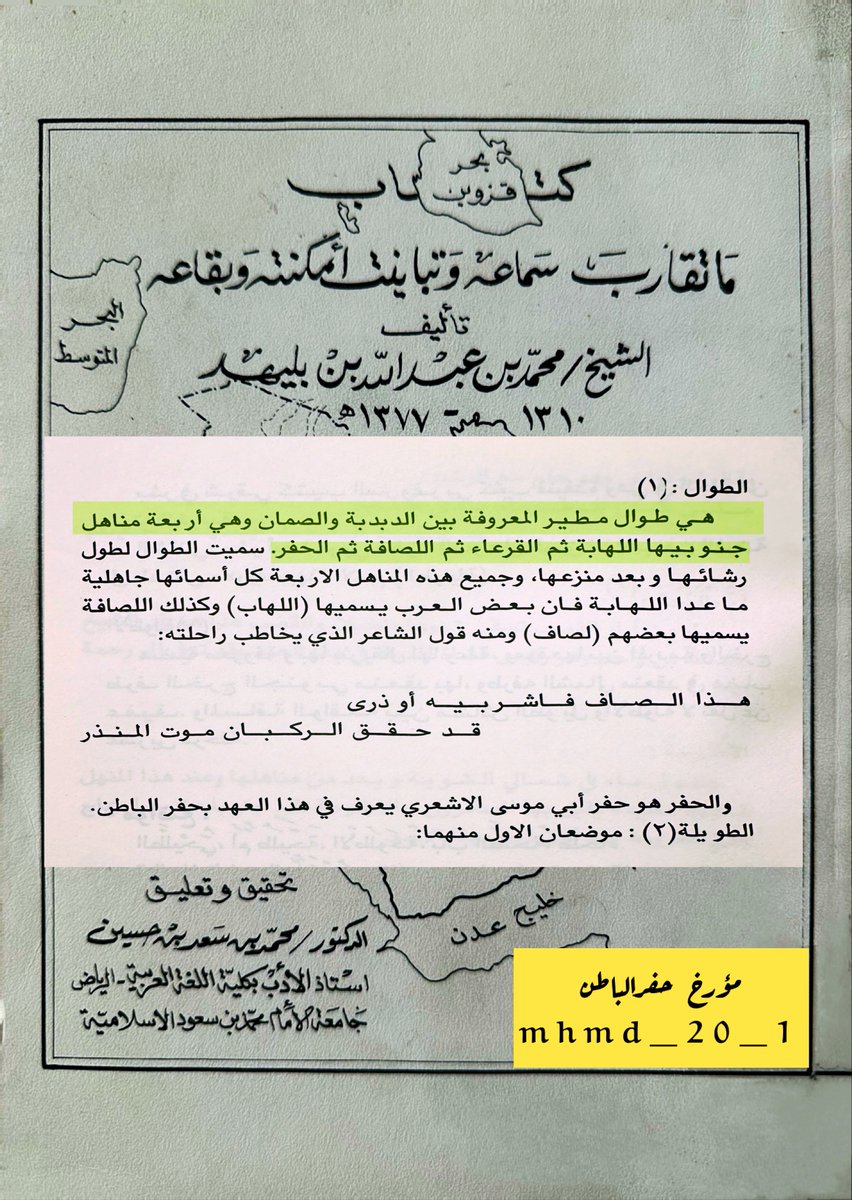 كتاب
بحر
قزوين
ما تقارب سماعه وتباينت أمكنته وبقاعه
البحر
المتوسط
تأليف
الشيخ/محمد بن عبد الله بن بليهد
١٣١٠ - ١٣٧٧ هـ
الطوال :(١)
هي طوال مطير المعروفة بين الدبدبة والصمان وهي أربعة مناهل
جنوبيها اللهابة ثم القرعاء ثم اللصافة ثم الحفر. سميت الطوال لطول
رشائها وبعد منزعها، وجميع هذه المناهل الاربعة كل أسمائها جاهلية
ما عدا اللهابة فان بعض العرب يسميها (اللهاب) وكذلك اللصافة
يسميها بعضهم (لصاف) ومنه قول الشاعر الذي يخاطب راحلته:
هذا الصاف فاشربيه أو ذرى
قد حقق الركبان موت المنذر
والحفر هو حفر أبي موسى الاشعري يعرف في هذا العهد بحفر الباطن.
الطويلة(٢) : موضعان الاول منهما:
تحقيق وتعليق
الدكتور/محمد بن سعد بن حسين
استاذ الأدب بكلية اللغة العربية - الرياض
جامعة الأمام محمد بن سعود الاسلامية
خليج عدن
مؤرخ حفرالباطن
mhmd_20_1